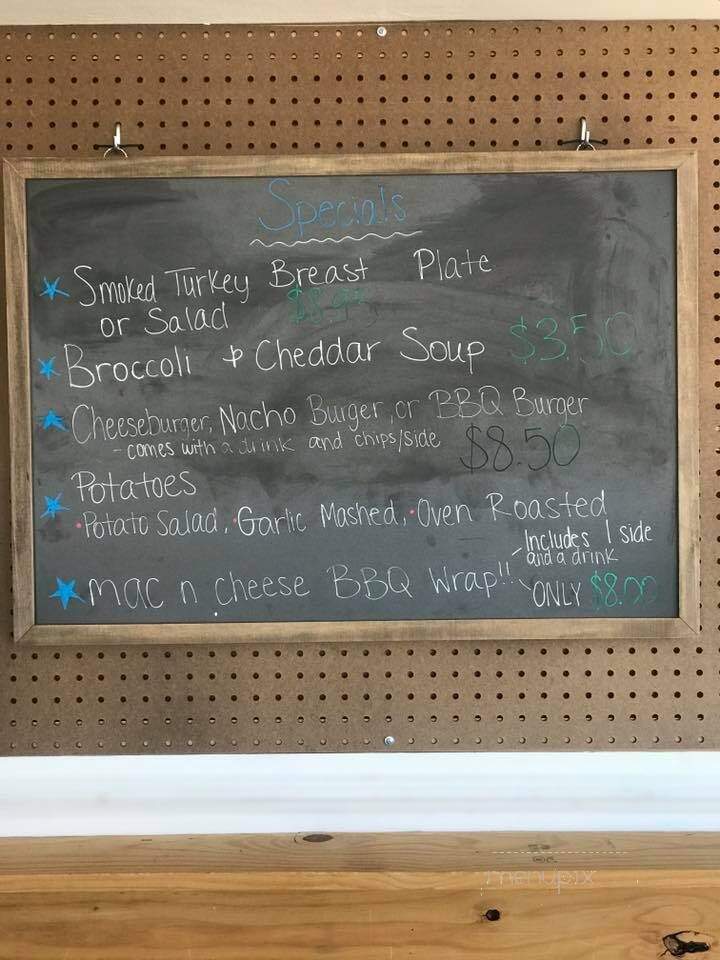 Specials
Smoked Turkey Breast Plate
or Salad
Broccoli & Cheddar Soup $3.50
Cheeseburger, Nacho Burger, or BBQ Burger
- comes with a drink and chips/side $8.50
Potatoes
• Potato Salad, • Garlic Mashed, • Oven Roasted
mac n cheese BBQ Wrap!!
Includes 1 side
and a drink
ONLY $8.00
menupix